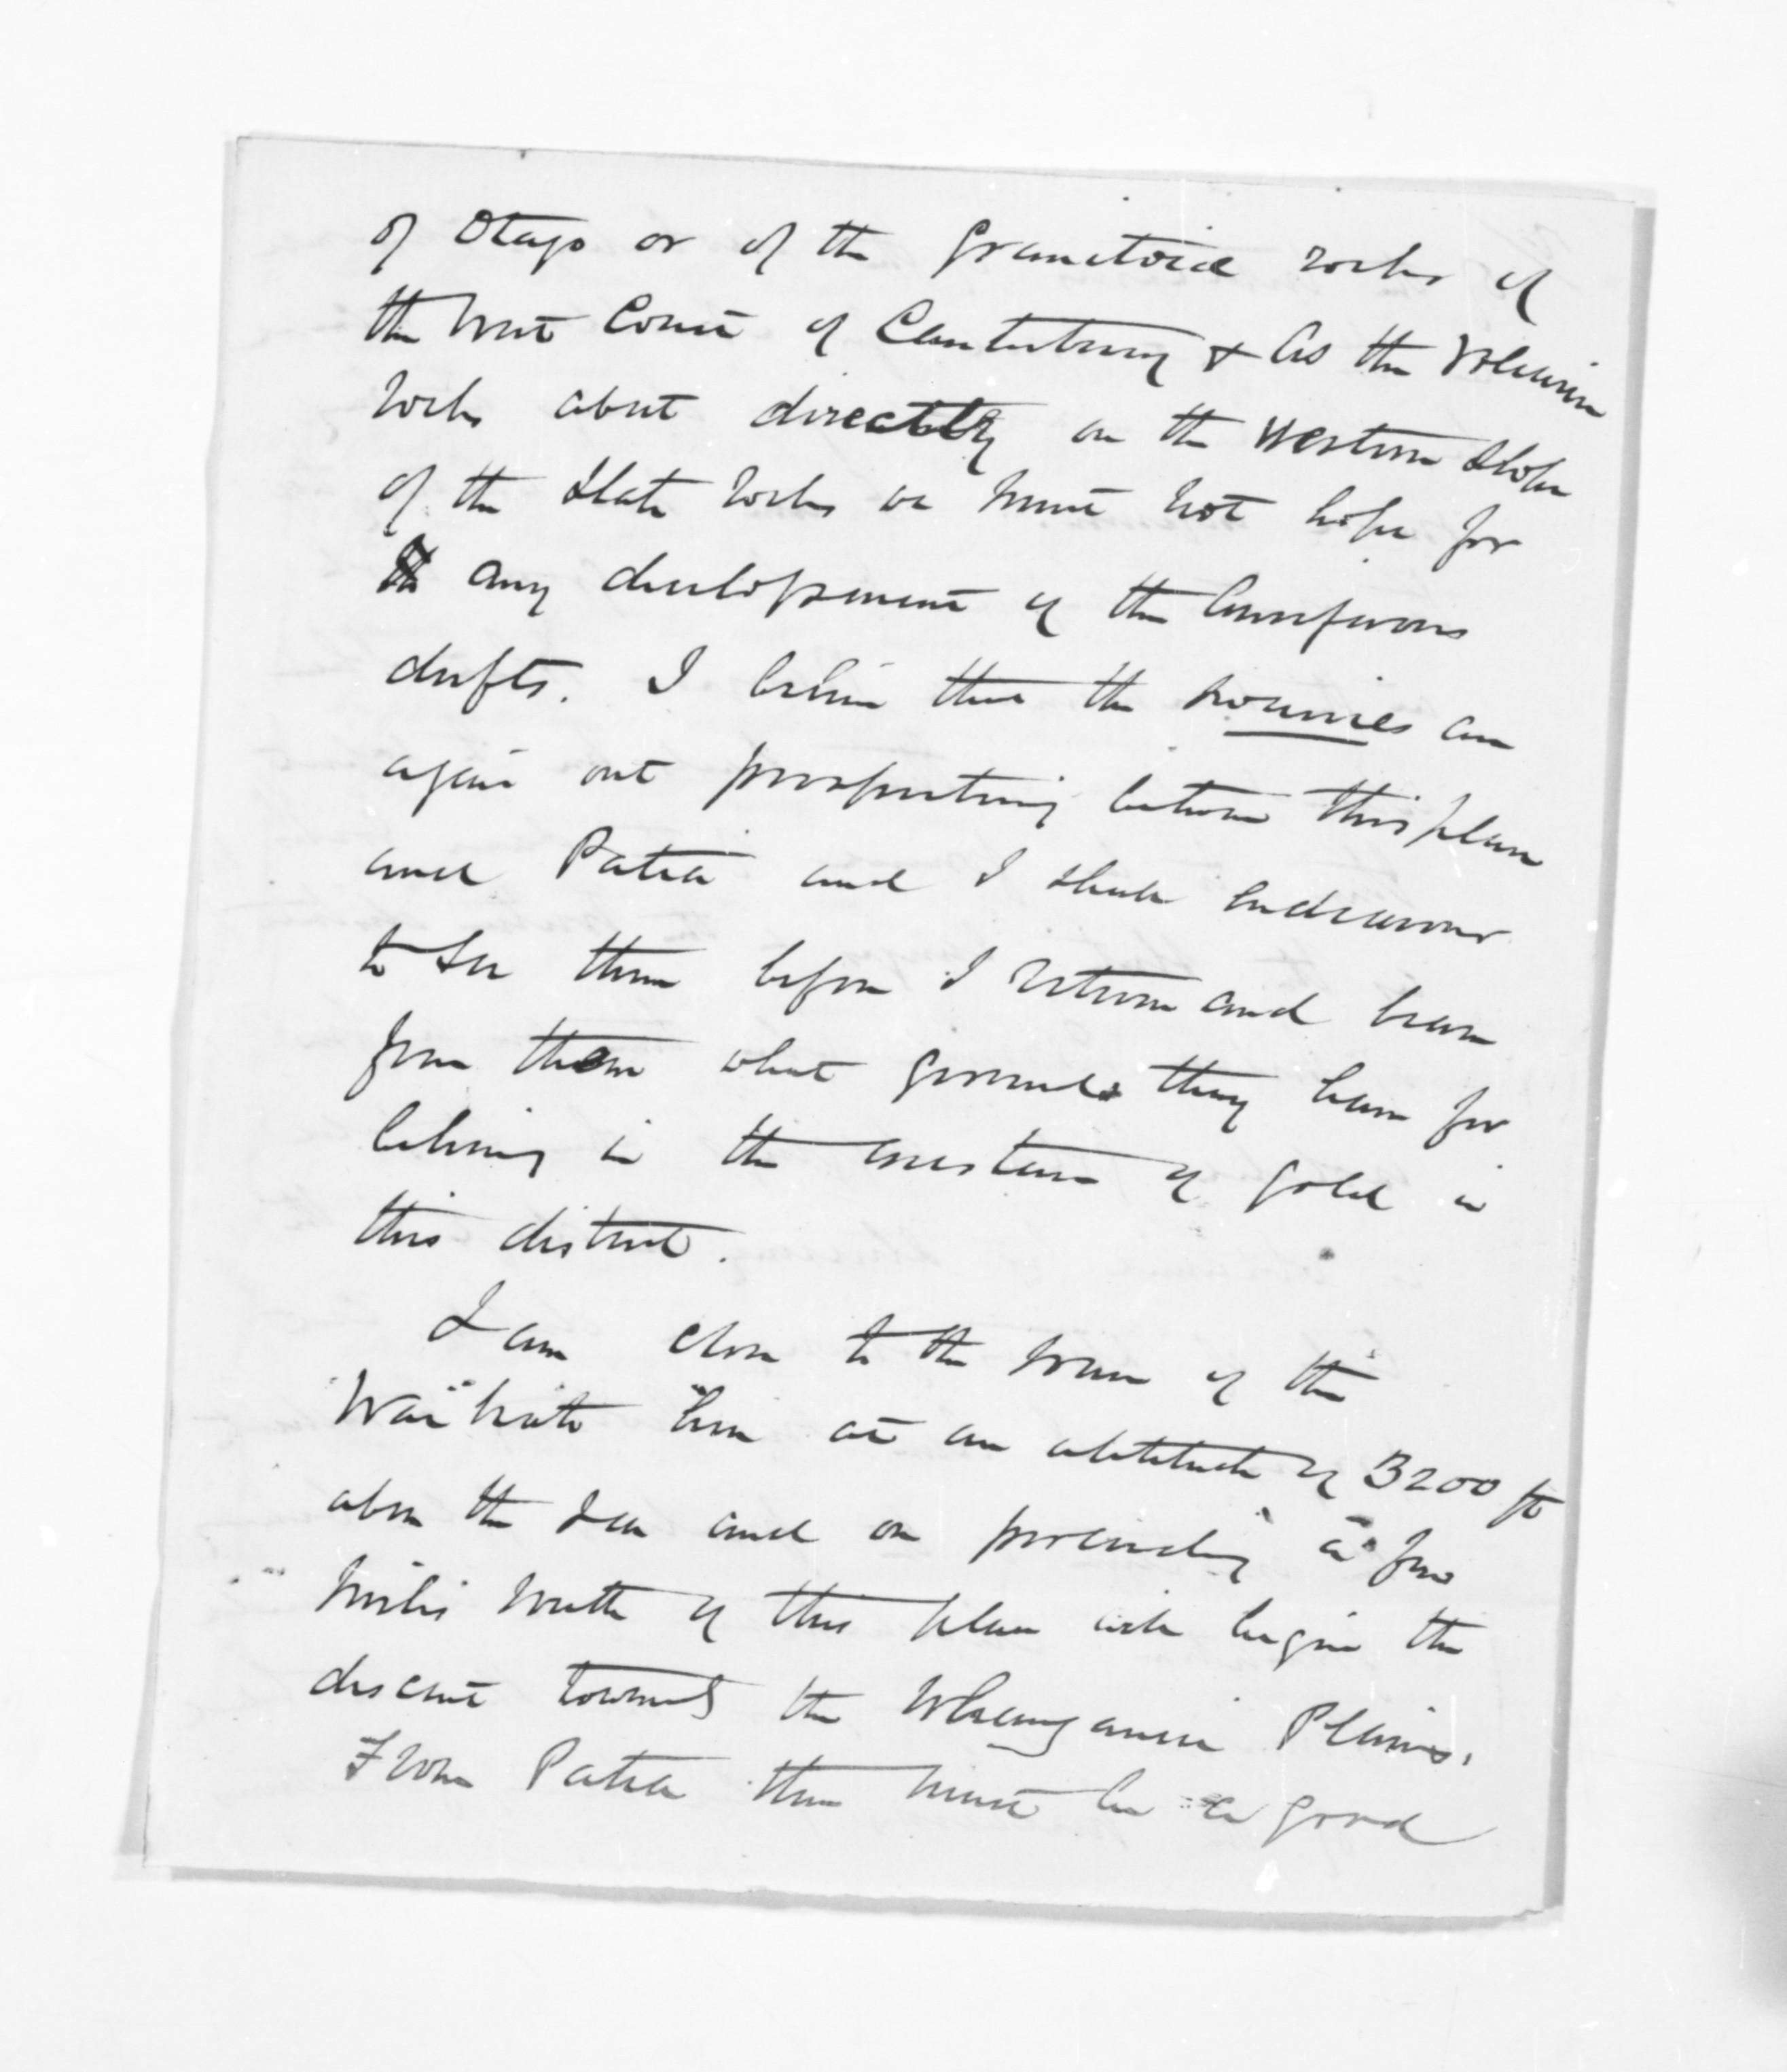 of Otago or of the Granitoid rocks of
the West Coast of Canterbury & as the Volcanic
rocks abut directly on the Western slope
of the slate rocks we must not hope for
any development of the Auriferous
drifts. I believe that the are
again out prospecting between this place
and Patea and I shall endeavour
to see them before I return and learn
from them what grounds they have for
believing in the existence of gold in
this district.
I am close to the of the
Waikato at an altitude of 3200 ft
above the sea and on proceeding a few
miles of this place will begin the
descent towards the Whanganui Plains.
From Patea there must be a good